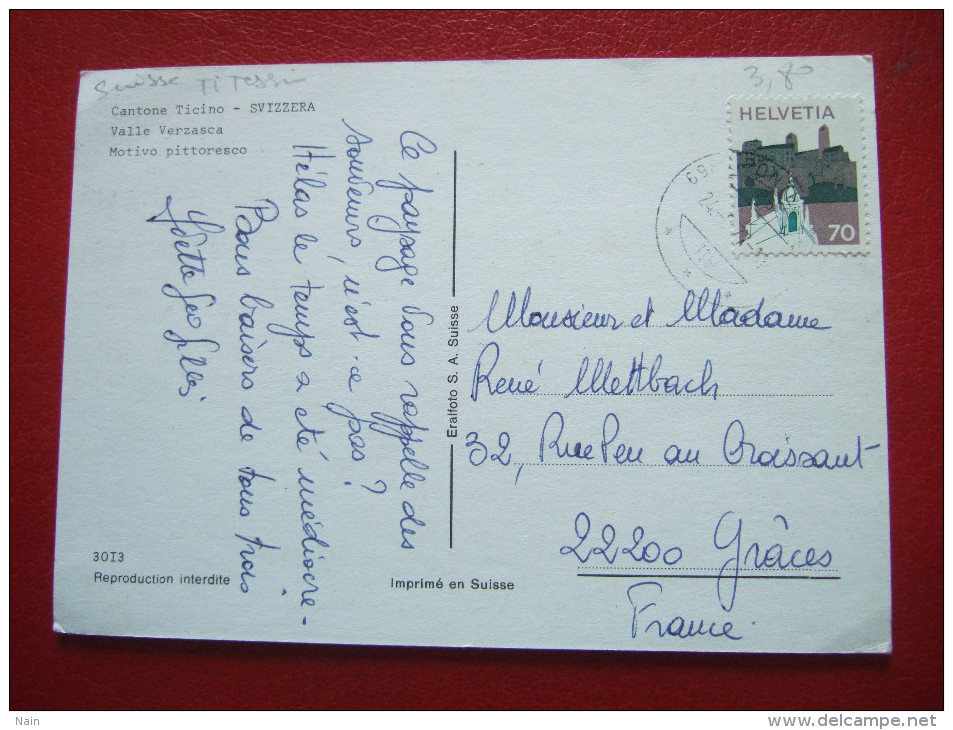 Suisse TI Tessin
3,80
Cantone Ticino - SVIZZERA
Valle Verzasca
Motivo pittoresco
HELVETIA
70
Ce paysage vous rappelle des
souvenirs, n'est-ce pas ?
Hélas le temps a été médiocre.
Bons baisers de tous trois
Eralfoto S. A. Suisse
Monsieur et Madame
René Mettbach
32, Rue Pen au Croissant
22200 Grâces
France.
30I3
Reproduction interdite
Imprimé en Suisse
Nain
www.delcampe.net